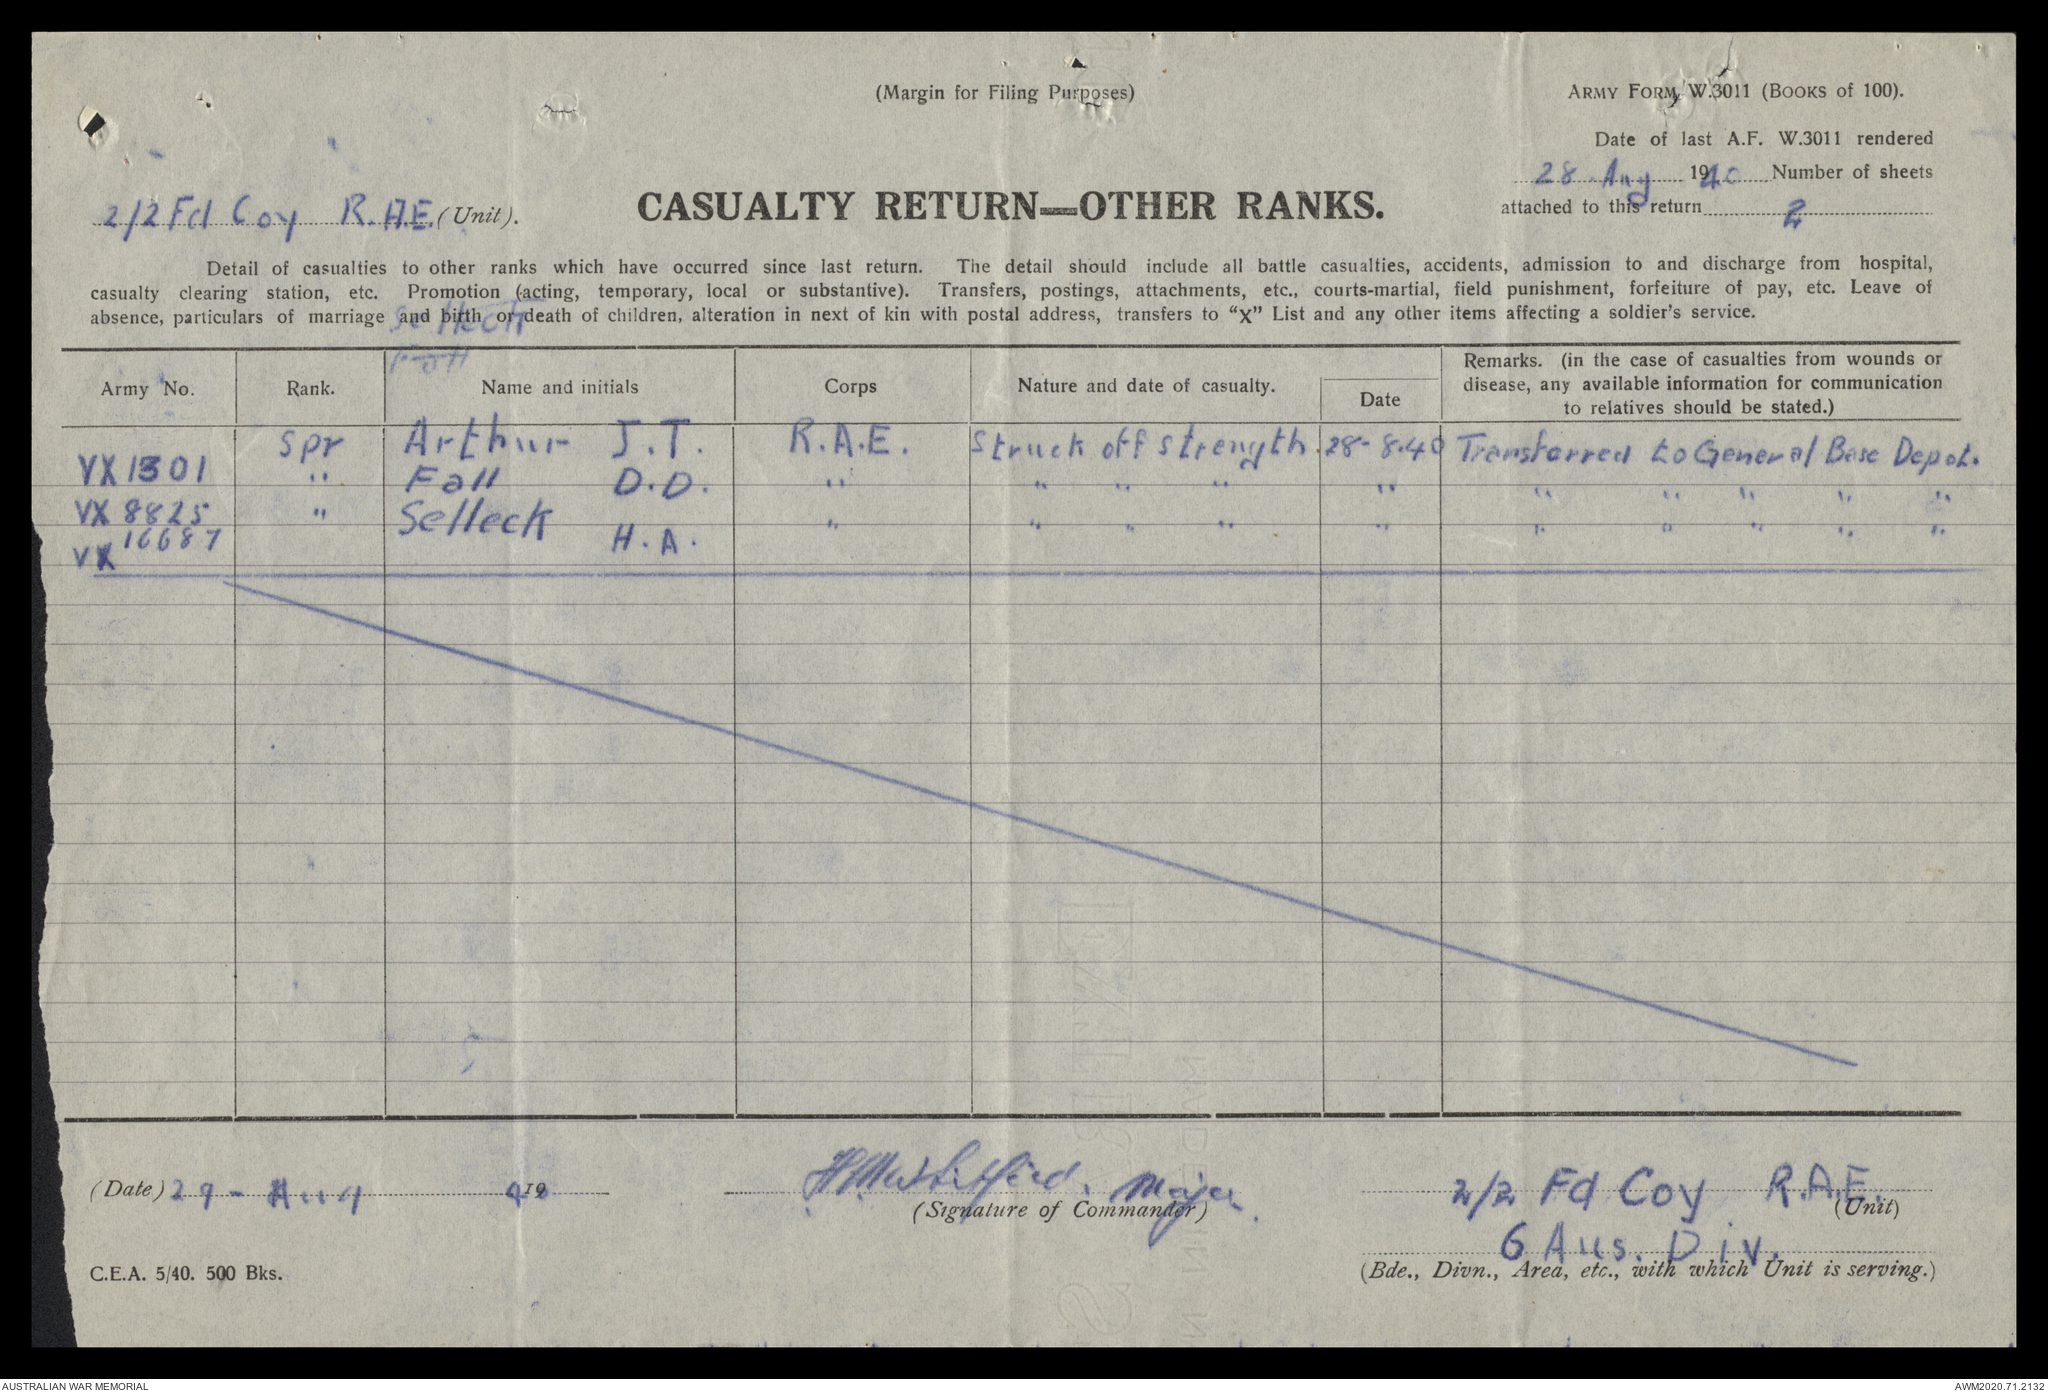 (Margin for Filing Purposes)
ARMY FORM W.3011 (BOOKS of 100).
Date of last A.F. W.3011 rendered
28 Aug 1940 Number of sheets
attached to this return 2
2/2 Fd Coy R.A.E. (Unit).
CASUALTY RETURN—OTHER RANKS.
Detail of casualties to other ranks which have occurred since last return. The detail should include all battle casualties, accidents, admission to and discharge from hospital,
casualty clearing station, etc. Promotion (acting, temporary, local or substantive). Transfers, postings, attachments, etc., courts-martial, field punishment, forfeiture of pay, etc. Leave of
absence, particulars of marriage and birth or death of children, alteration in next of kin with postal address, transfers to "X" List and any other items affecting a soldier's service.
Army No. Rank. Name and initials Corps Nature and date of casualty. Date Remarks. (in the case of casualties from wounds or
disease, any available information for communication
to relatives should be stated.)
VX 1301 Spr Arthur J.T. R.A.E. Struck off strength. 28-8.40 Transferred to General Base Depot.
VX 8825 " Fall D.D. " " " " " " " " " "
VX 16687 " Selleck H.A. " " " " " " " " " "
(Date) 29 - Aug 1940
Major
(Signature of Commander)
2/2 Fd Coy R.A.E.
(Unit)
6 Aus. Div.
(Bde., Divn., Area, etc., with which Unit is serving.)
C.E.A. 5/40. 500 Bks.
AUSTRALIAN WAR MEMORIAL
AWM2020.71.2132